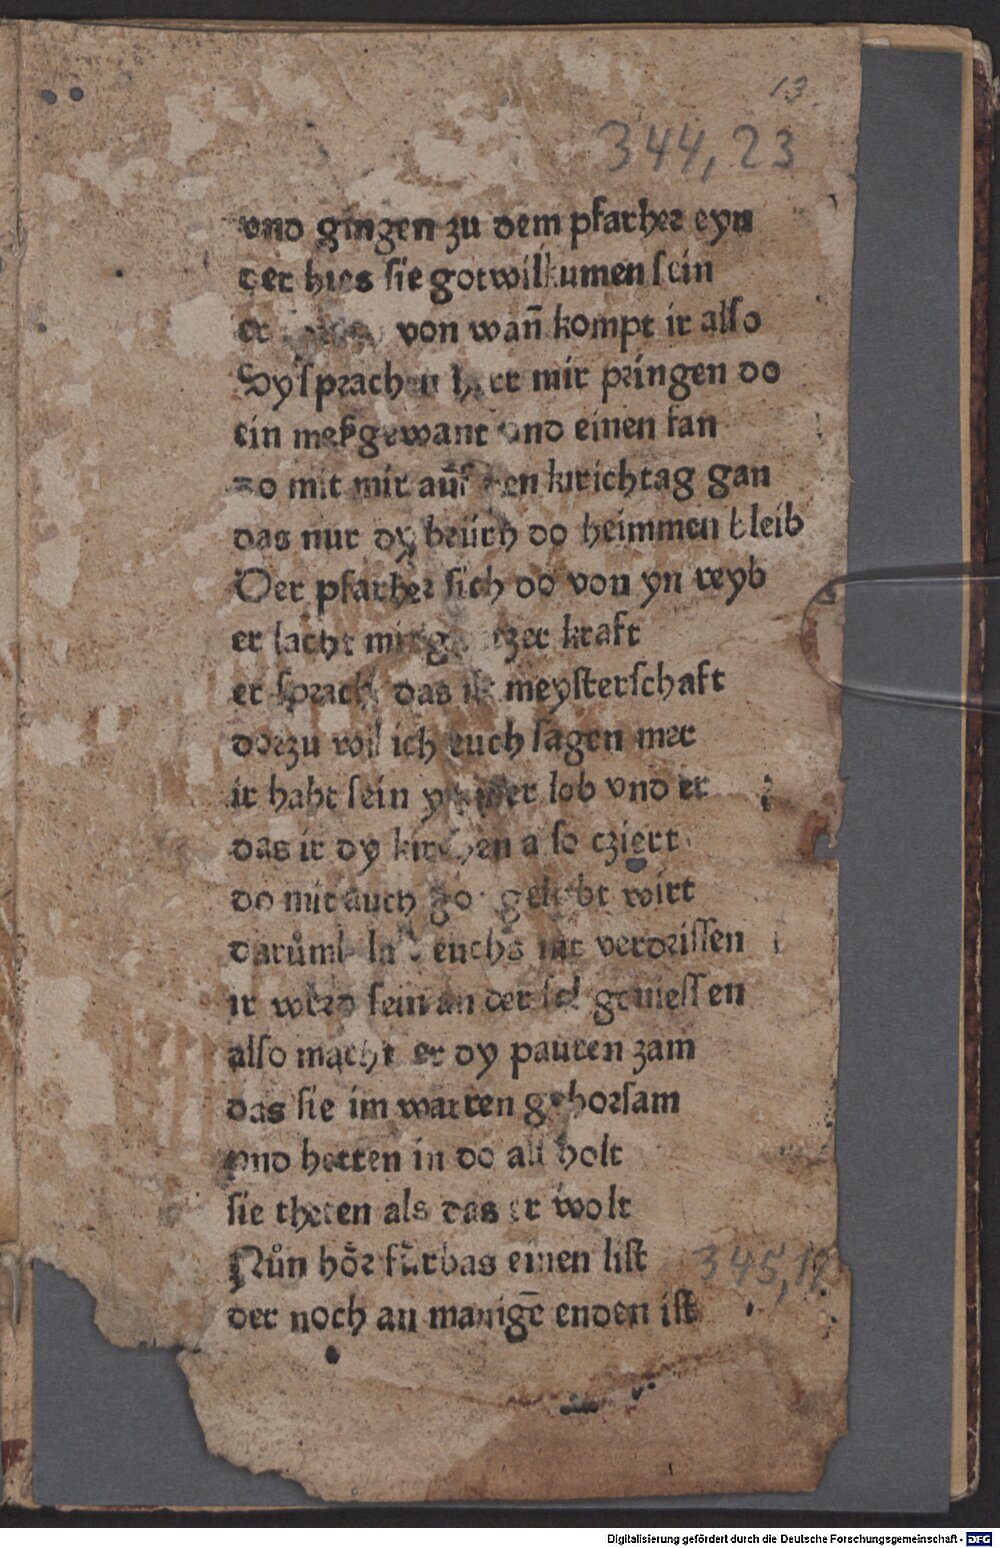 13
344, 23
vnd gingen zu dem pfarher eyn
der hies sie gotwilkumen sein
er von wan̄ kompt ir also
Dy sprachen herr mir pringen do
ein meßgewant vnd einen fan
zo mit mir auff den kirichtag gan
das nur dy brüch do heimmen bleib
Der pfarher sich do von yn reyb
er lacht mit gantzer kraft
er sprach das ist meysterschaft
dorzu wil ich euch sagen mer
ir habt sein ymmer lob vnd er
das ir dy kirchen also cziert
do mit auch got gelobt wirt
darůmb last euchs nit verdrissen
ir werd sein an der sel geniessen
also macht er dy pauren zam
das sie im warren gehorsam
vnd hetten in do all holt
sie theten als das er wolt
Nůn hőr fűrbas einen list
der noch an manigē enden ist
345, 17
Digitalisierung gefördert durch die Deutsche Forschungsgemeinschaft - DFG